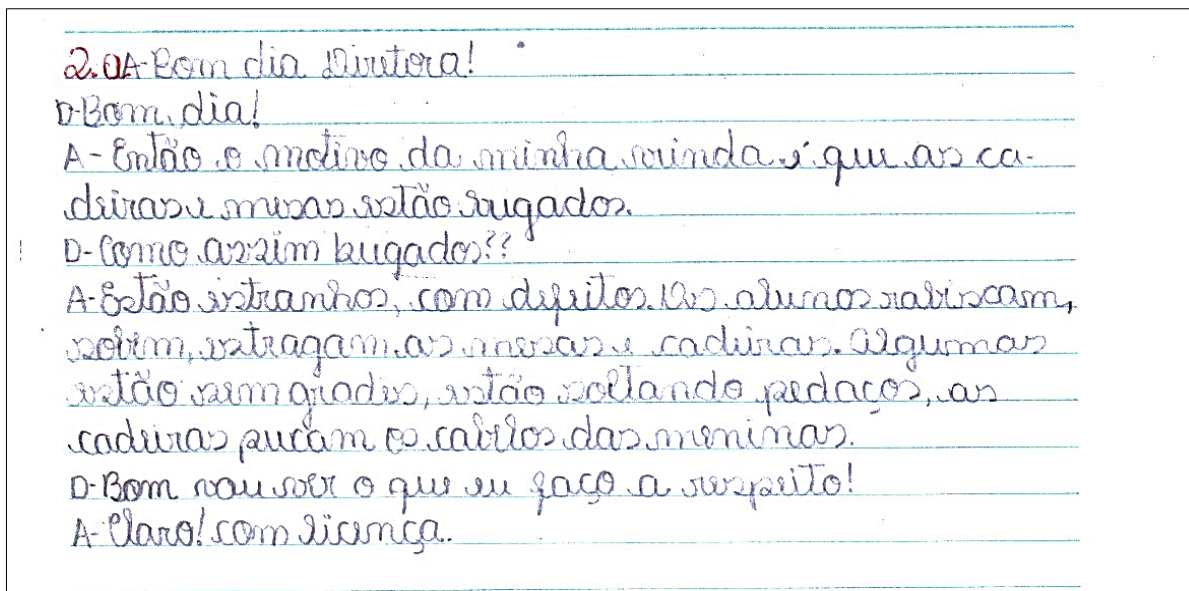 2.0A-Bom dia Diretora!
D-Bom, dia!
A- Então o motivo da minha vinda é que as ca-
deiras e mesas estão bugados.
D- Como assim bugados??
A- Estão estranhos, com defeitos. Os alunos rabiscam,
sobem, estragam as mesas e cadeiras. Algumas
estão sem grades, estão soltando pedaços, as
cadeiras pucam os cabelos das meninas.
D-Bom vou ver o que eu faço a respeito!
A- Claro! com licença.